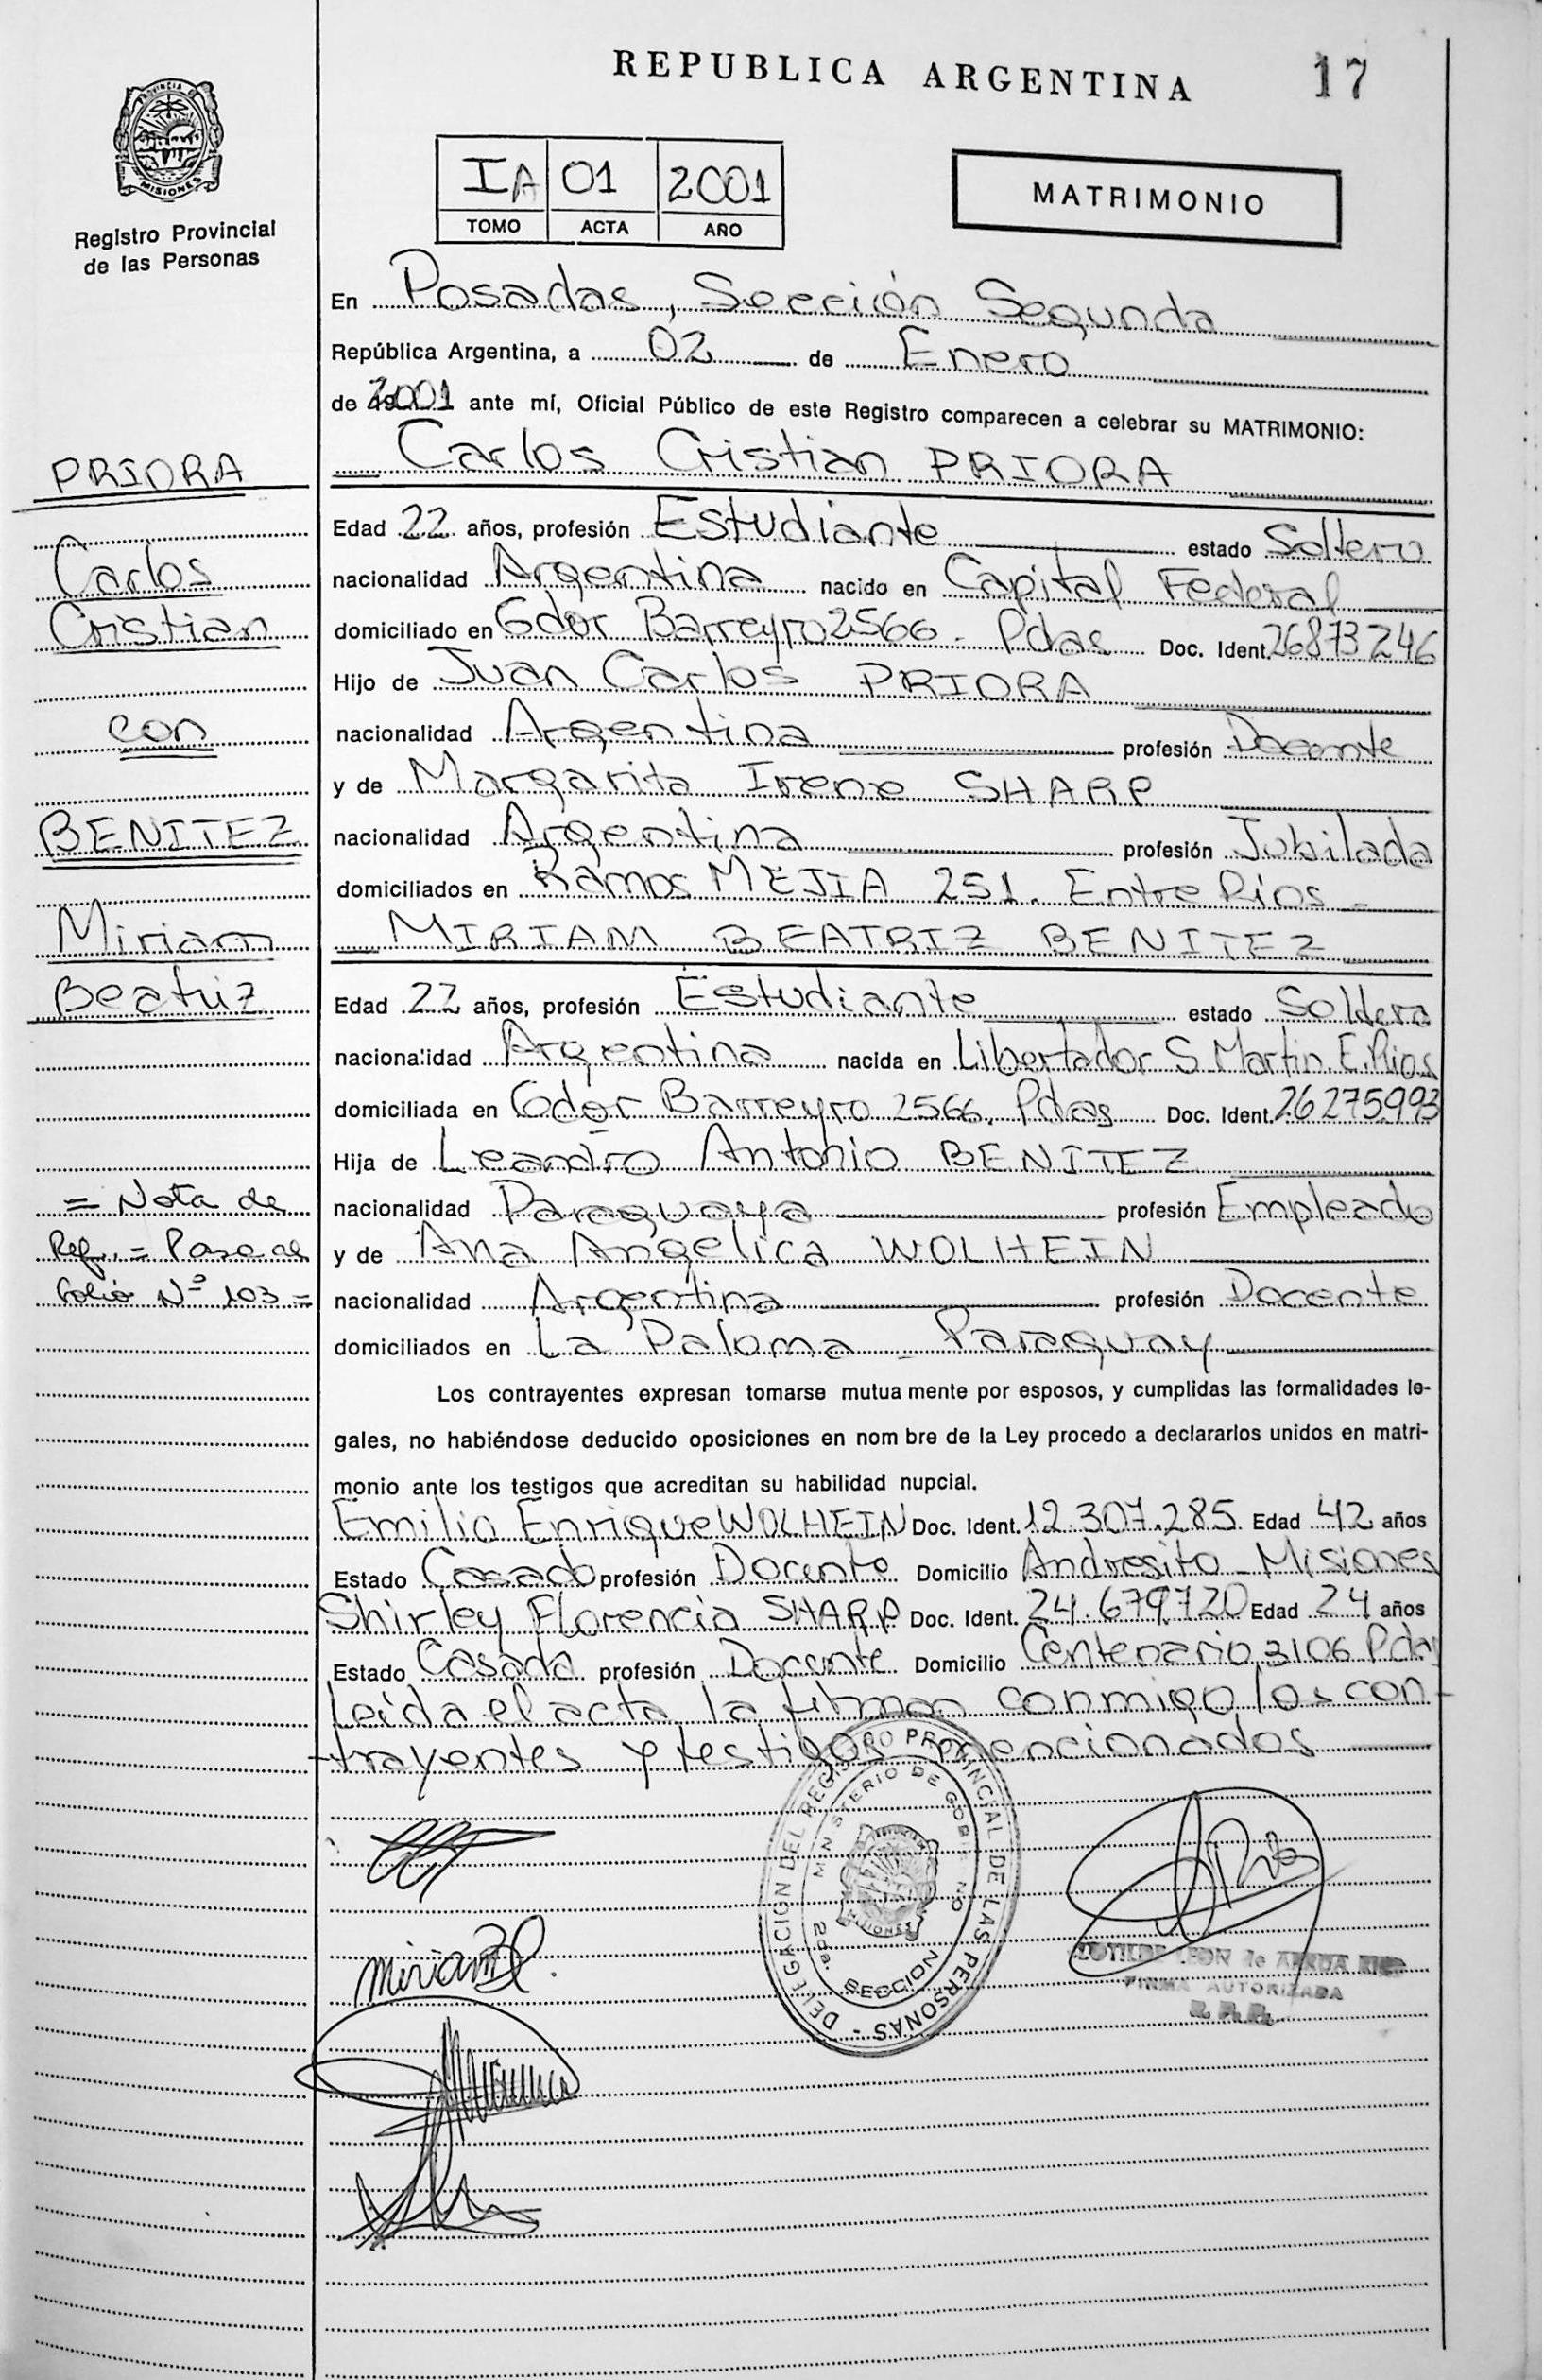 REPUBLICA ARGENTINA
17
PROVINCIA DE
MISIONES
Registro Provincial
de las Personas
IA 01 2001
TOMO ACTA AÑO
MATRIMONIO
En Posadas, Sección Segunda
República Argentina, a 02 de Enero
de 2001 ante mí, Oficial Público de este Registro comparecen a celebrar su MATRIMONIO:
Carlos Cristian PRIORA
Edad 22 años, profesión Estudiante estado Soltero
nacionalidad Argentina nacido en Capital Federal
domiciliado en Gdor Barreyro 2566 - Pdas Doc. Ident. 26873246
Hijo de Juan Carlos PRIORA
nacionalidad Argentina profesión Docente
y de Margarita Irene SHARP
nacionalidad Argentina profesión Jubilada
domiciliados en Ramos MEJIA 251. Entre Ríos -
MIRIAM BEATRIZ BENITEZ
Edad 22 años, profesión Estudiante estado Soltera
nacionalidad Argentina nacida en Libertador S. Martin. E. Rios
domiciliada en Gdor Barreyro 2566. Pdas Doc. Ident. 26275993
Hija de Leandro Antonio BENITEZ
nacionalidad Paraguaya profesión Empleado
y de Ana Angelica WOLHEIN
nacionalidad Argentina profesión Docente
domiciliados en La Paloma - Paraguay
Los contrayentes expresan tomarse mutua mente por esposos, y cumplidas las formalidades le-
gales, no habiéndose deducido oposiciones en nom bre de la Ley procedo a declararlos unidos en matri-
monio ante los testigos que acreditan su habilidad nupcial.
Emilio Enrique WOLHEIN Doc. Ident. 12.307.285 Edad 42 años
Estado Casado profesión Docente Domicilio Andresito - Misiones
Shirley Florencia SHARP Doc. Ident. 24.679.720 Edad 24 años
Estado Casada profesión Docente Domicilio Centenario 3106 Pdas
Leida el acta, la firman conmigo los con-
trayentes y testigos mencionados
PRIORA
Carlos
Cristian
con
BENITEZ
Miriam
Beatriz
= Nota de
Ref. = Pase al
folio Nº 103 =
DELEGACION DEL REGISTRO PROVINCIAL DE LAS PERSONAS -
MINISTERIO DE GOBIERNO
MISIONES
2da. SECCION
Miriam
LEON de
FIRMA AUTORIZADA